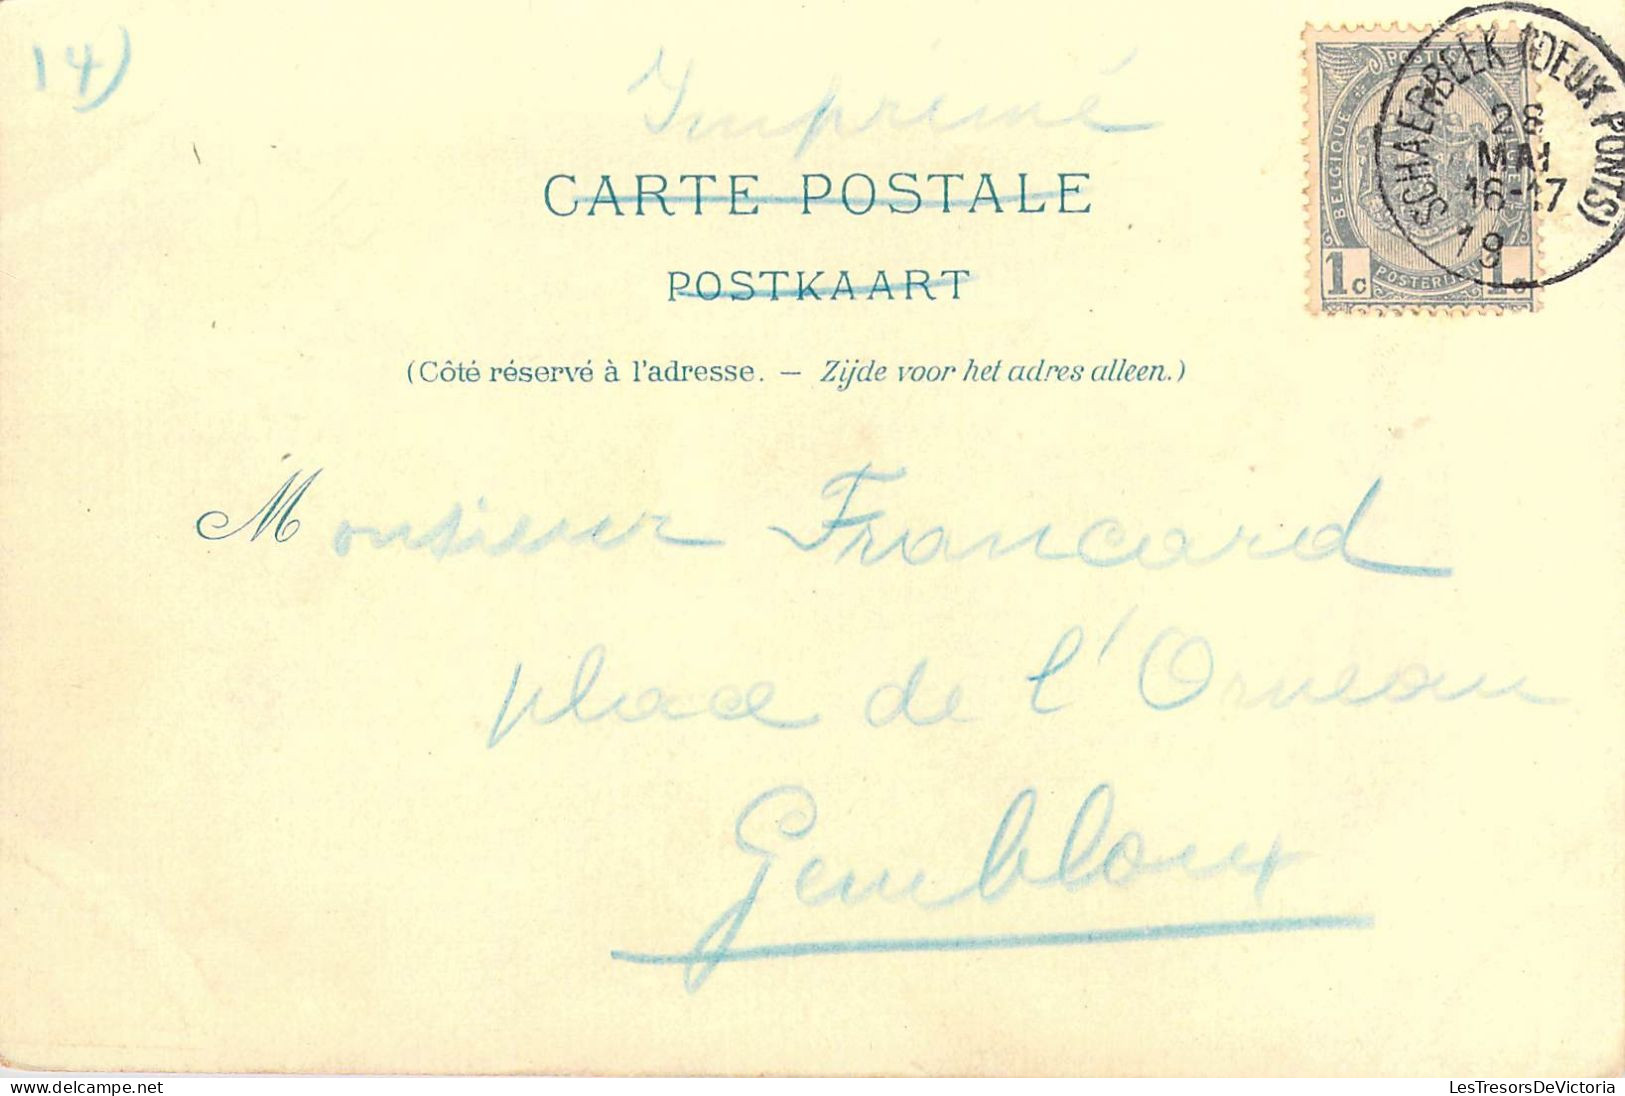 14)
Imprimé
CARTE POSTALE
POSTKAART
(Côté réservé à l'adresse. — Zijde voor het adres alleen.)
SCHAERBEEK (DEUX PONTS)
28
MAI
16-17
19
BELGIQUE
1c POSTERIJEN 1c
Monsieur Francard
place de l'Orneau
Gembloux
LesTresorsDeVictoria.com